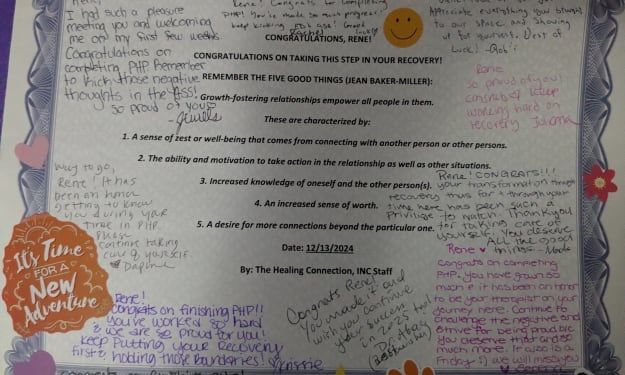 I had such a pleasure
meeting you and welcoming
me on my first few weeks.
Congratulations on
completing PHP. Remember
to kick those negative
thoughts in the ass!
So proud of you!
-Jewels
Rene! Congrats on completing
PHP! You've made so much progress
keep kicking
Rachel
Appreciate everything you brought
to our space and showing
up for yourself. Best of
Luck!
CONGRATULATIONS, RENE!
CONGRATULATIONS ON TAKING THIS STEP IN YOUR RECOVERY!
REMEMBER THE FIVE GOOD THINGS (JEAN BAKER-MILLER):
Growth-fostering relationships empower all people in them.
These are characterized by:
1. A sense of zest or well-being that comes from connecting with another person or other persons.
2. The ability and motivation to take action in the relationship as well as other situations.
3. Increased knowledge of oneself and the other person(s).
4. An increased sense of worth.
5. A desire for more connections beyond the particular one.
Date: 12/13/2024
By: The Healing Connection, INC Staff
Rene
So proud of you!
keep
working hard on
recovery
Way to go,
Rene! It has
been an honor
getting to know
you during your
time in PHP.
Please
continue taking
care of yourself.
Daphne
Rene! CONGRATS!!!
your transformation through
recovery thus far & through your
time here has been such a
privilege to watch. Thank you
for taking care of
yourself. You deserve
ALL the good
things
It's Time
FOR A
New
Adventure!
Rene!
Congrats on finishing PHP!!
You've worked so hard
& we are so proud of you!
Keep putting your recovery
first & holding those boundaries!
Congrats Rene!
You made it and
wish you continue
your success
in 2025 too!
Rene ♥
Congrats on completing
PHP. You have grown so
much & it has been an honor
to be your therapist on your
journey here. Continue to
challenge the negative and
strive for being
you deserve that and so
much more!
Friday :) we will miss you